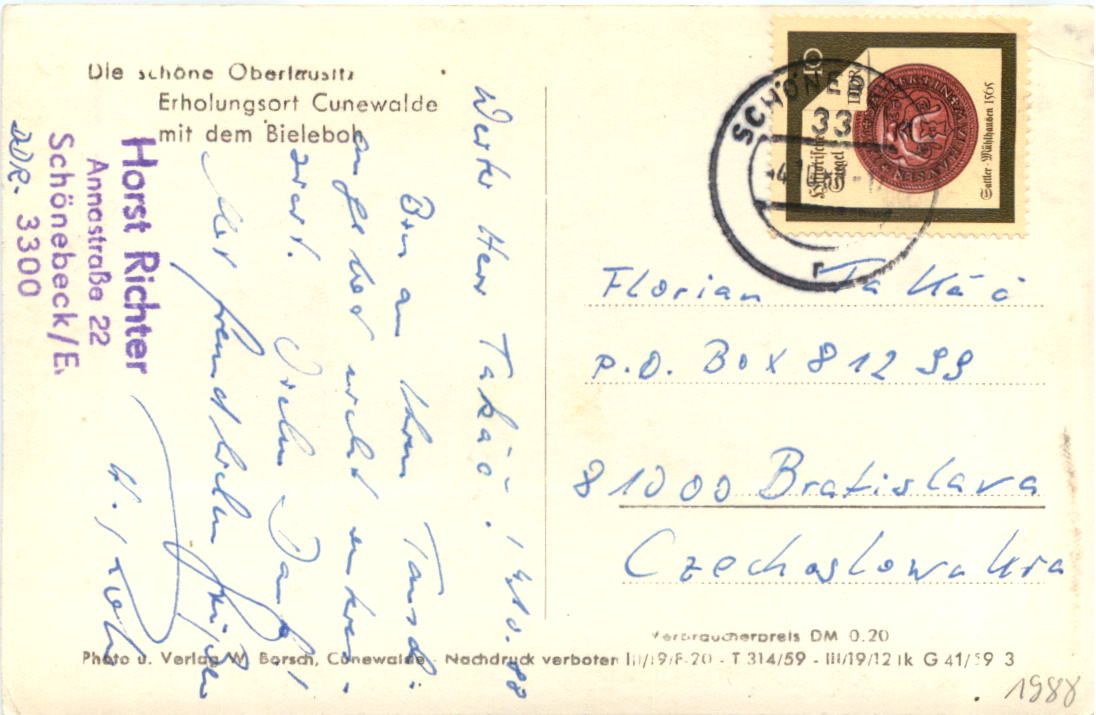 Die schöne Oberlausitz
Erholungsort Cunewalde
mit dem Bieleboh
Horst Richter
Annastraße 22
Schönebeck/E.
DDR- 3300
Werter Herr Takáč!
Bin an Ihrem Tausch-
angebot nicht interes-
siert. Vielen Dank!
Mit freundlichen Grüßen
10
DDR
Historische
Siegel
Sattler Mühlhausen 1565
SCHÖNE
33
Florian Takáč
P.O. Box 812 99
81000 Bratislava
Czechoslowakra
Verbraucherpreis DM 0.20
Photo u. Verlag W. Borsch, Cunewalde - Nachdruck verboten III/19/8-20 - T 314/59 - III/19/12 lk G 41/59 3
1988